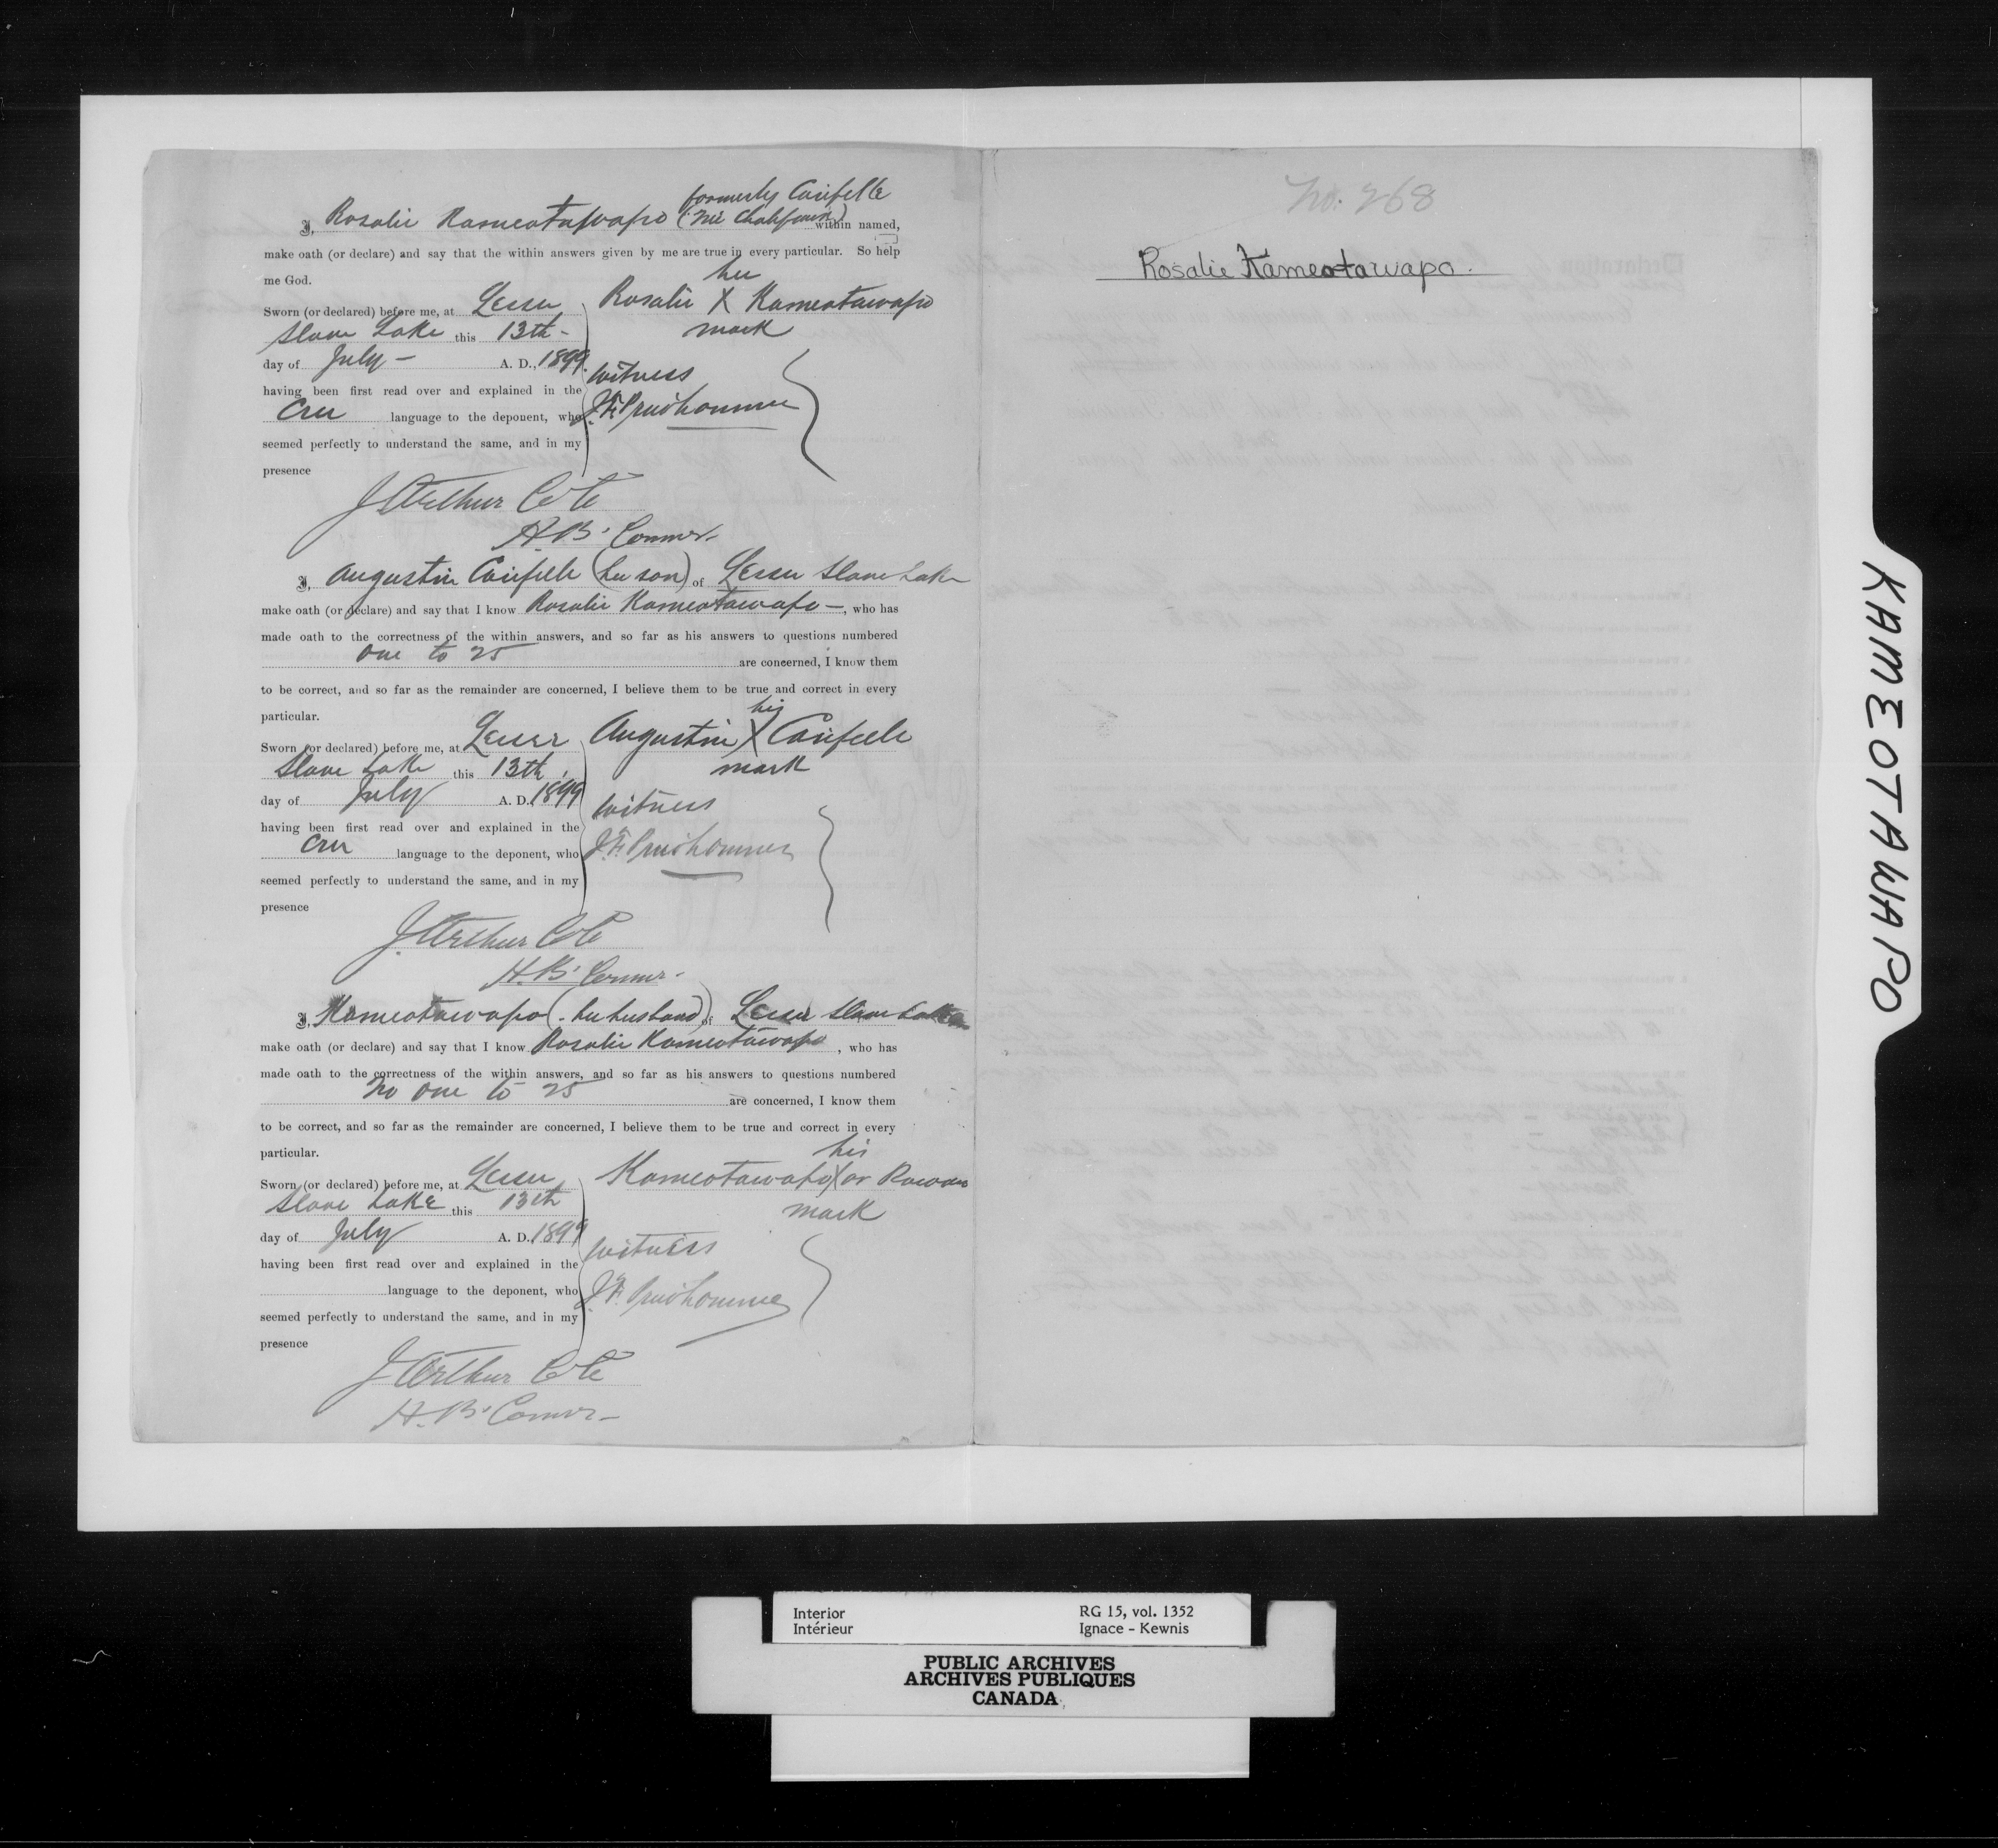 formerly Carifelle
I, Rosalie Kameotawapo (née Chalifoux) within named,
make oath (or declare) and say that the within answers given by me are true in every particular. So help
me God.
her
Sworn (or declared) before me, at Lesser Rosalie X Kameotawapo
Slave Lake this 13th - mark
day of July - A. D., 1899.
witness
having been first read over and explained in the
Cree language to the deponent, who J. F. Prudhomme
seemed perfectly to understand the same, and in my
presence
J. Arthur Coté
H. B. Connor.
I, Augustin Carifelle (her son) of Lesser Slave Lake
make oath (or declare) and say that I know Rosalie Kameotawapo -, who has
made oath to the correctness of the within answers, and so far as his answers to questions numbered
one to 25 are concerned, I know them
to be correct, and so far as the remainder are concerned, I believe them to be true and correct in every
particular.
his
Sworn (or declared) before me, at Lesser Augustin X Carifelle
Slave Lake this 13th mark
day of July A. D. 1899
witness
having been first read over and explained in the
Cree language to the deponent, who J. F. Prudhomme
seemed perfectly to understand the same, and in my
presence
J. Arthur Coté
H. B. Connor.
I, Kameotawapo (her husband) of Lesser Slave Lake
make oath (or declare) and say that I know Rosalie Kameotawapo, who has
made oath to the correctness of the within answers, and so far as his answers to questions numbered
No one to 25 are concerned, I know them
to be correct, and so far as the remainder are concerned, I believe them to be true and correct in every
particular.
his
Sworn (or declared) before me, at Lesser Kameotawapo X or
Slave Lake this 13th mark
day of July A. D. 1899
witness
having been first read over and explained in the
language to the deponent, who J. F. Prudhomme
seemed perfectly to understand the same, and in my
presence
J. Arthur Coté
H. B. Connor -
No. 268
Rosalie Kameotawapo.
KAMEOTAWAPO
Interior RG 15, vol. 1352
Intérieur Ignace - Kewnis
PUBLIC ARCHIVES
ARCHIVES PUBLIQUES
CANADA